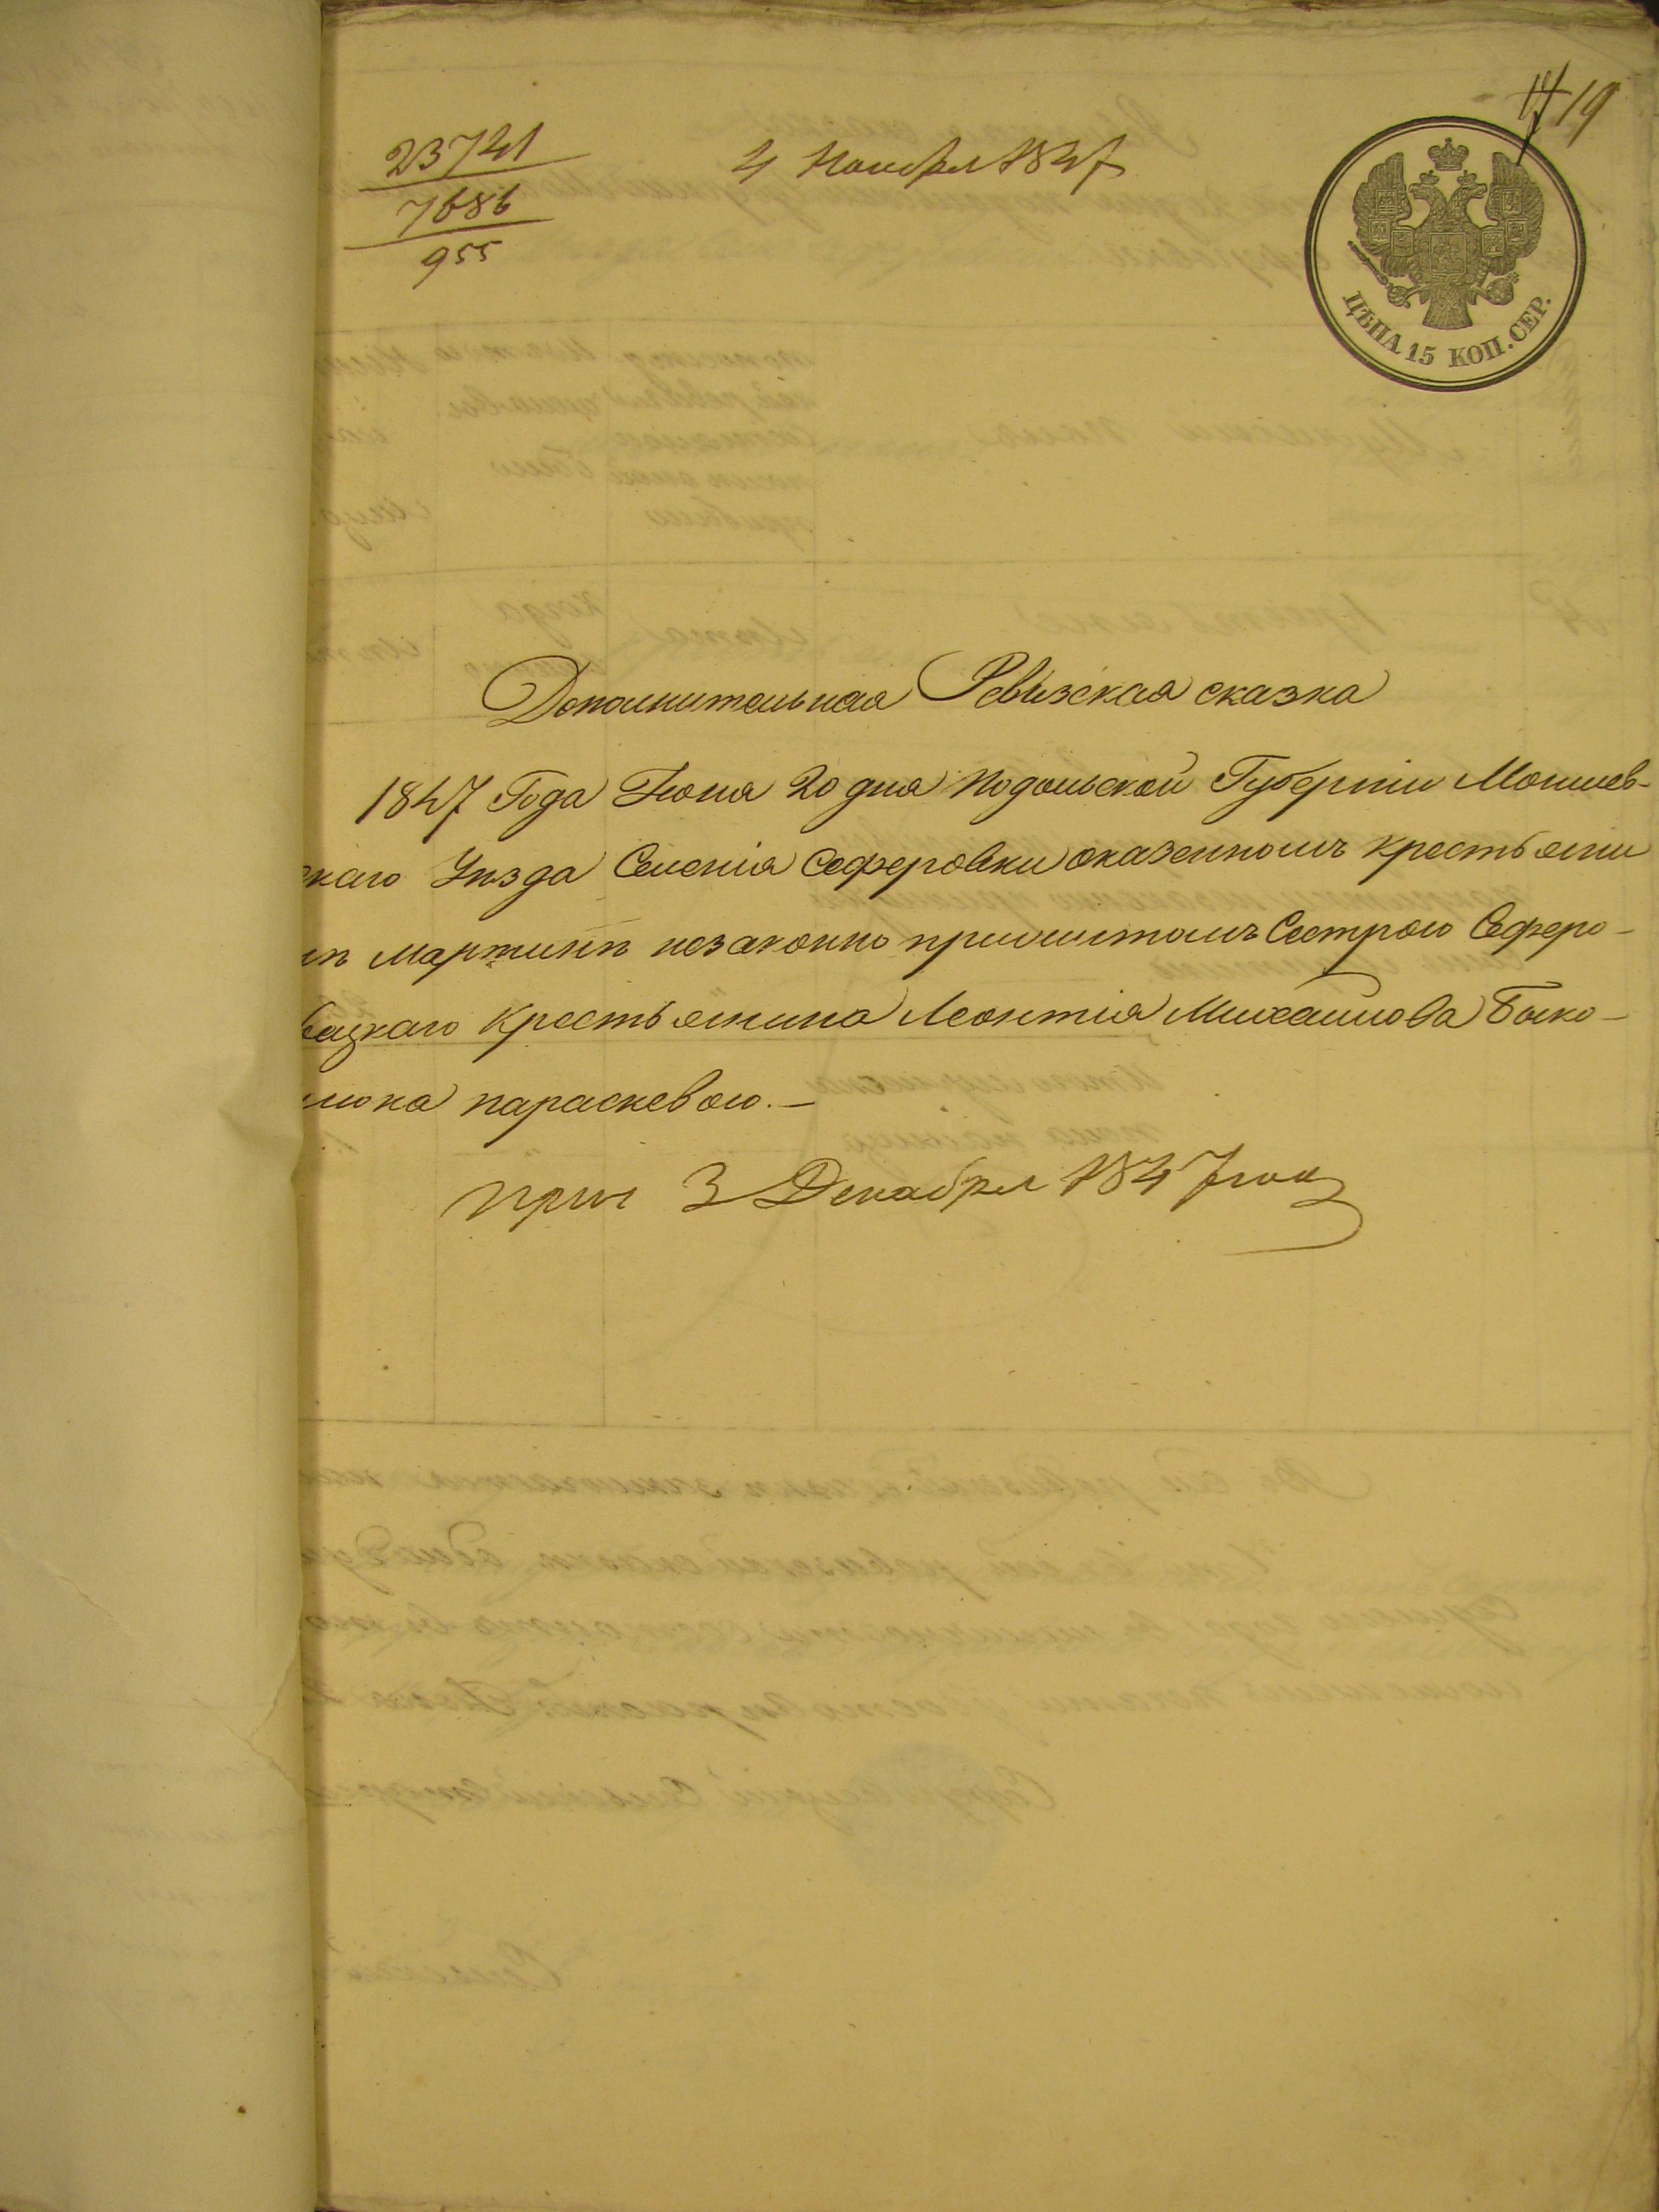 23741
7686
955
4 Ноября 1847
19
ЦѢНА 15 КОП. СЕР.
Дополнительная Ревизская сказка
1847 Года Июня 20 дня Подольской Губерніи Могилев-
скаго Уѣзда Селенія Сеферовки оказенномъ крестьяни
нѣ Мартинѣ незаконно прижитомъ Сестрою Сеферо-
вецкаго Крестьянина Леонтія Михайлова Быко-
люка параскевою. —
3 Декабря 1847 года